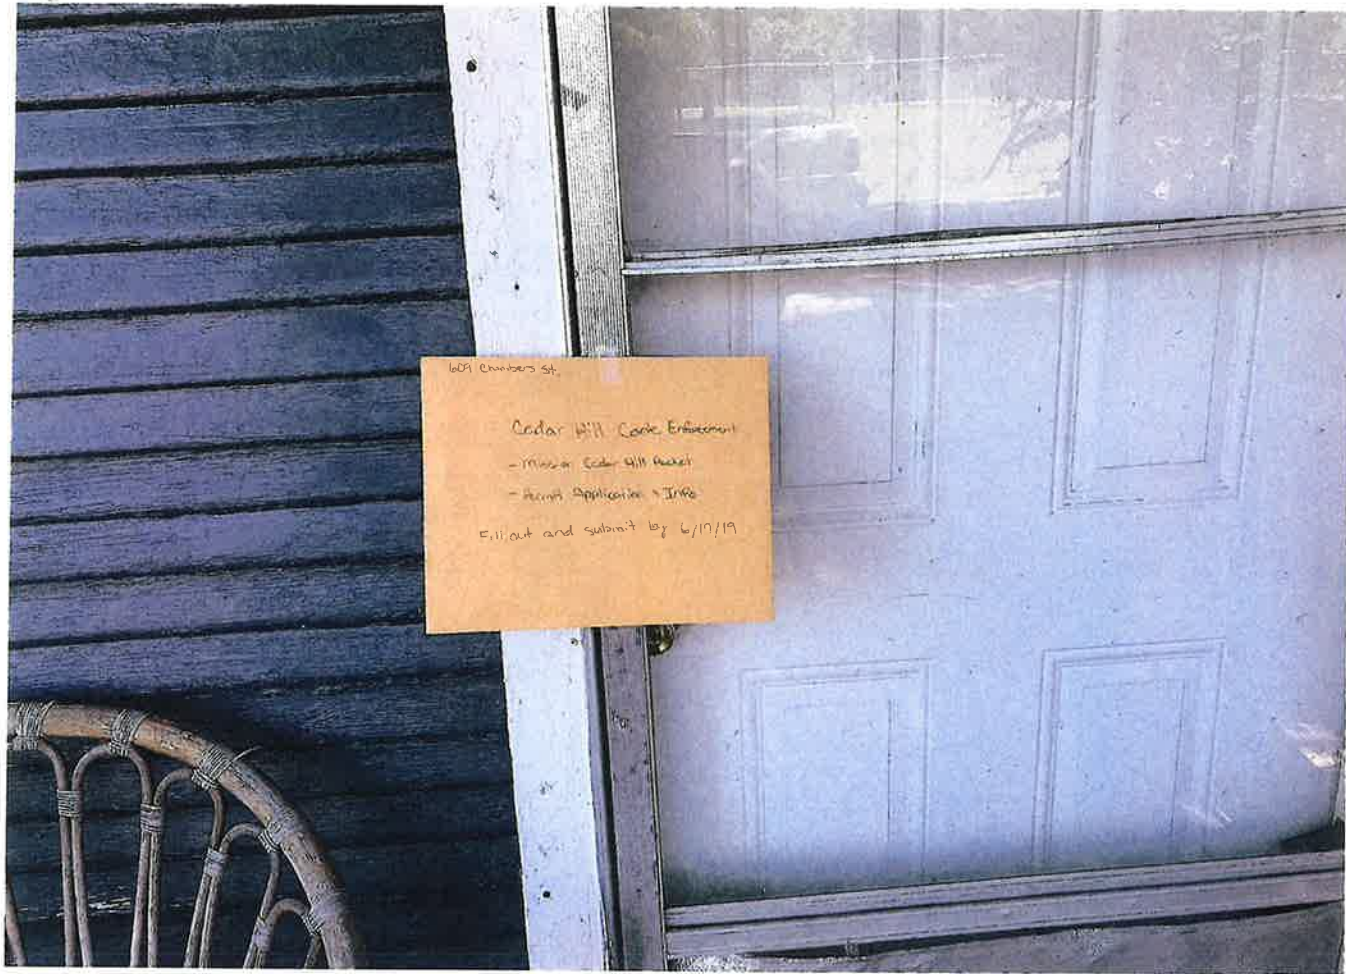 609 Chambers St.
Cedar Hill Code Enforcement
- Mission Cedar Hill Packet
- Permit Application + Info
Fill out and submit by 6/17/19